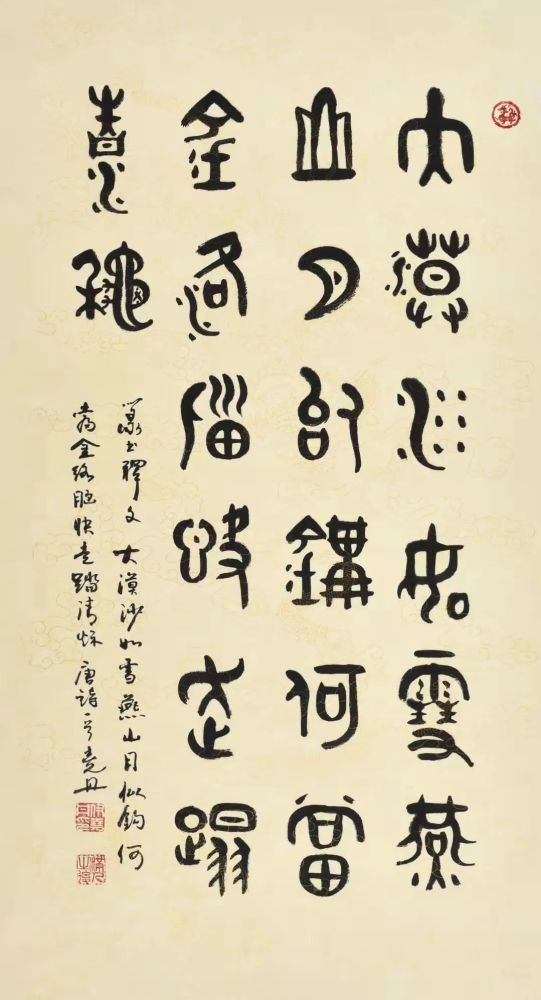 大漠沙如雪燕
山月似鉤何當
金絡腦快走踏
清秋
篆书釋文 大漠沙如雪燕山月似鈎何
當金络脑快走踏清秋 唐詩一首